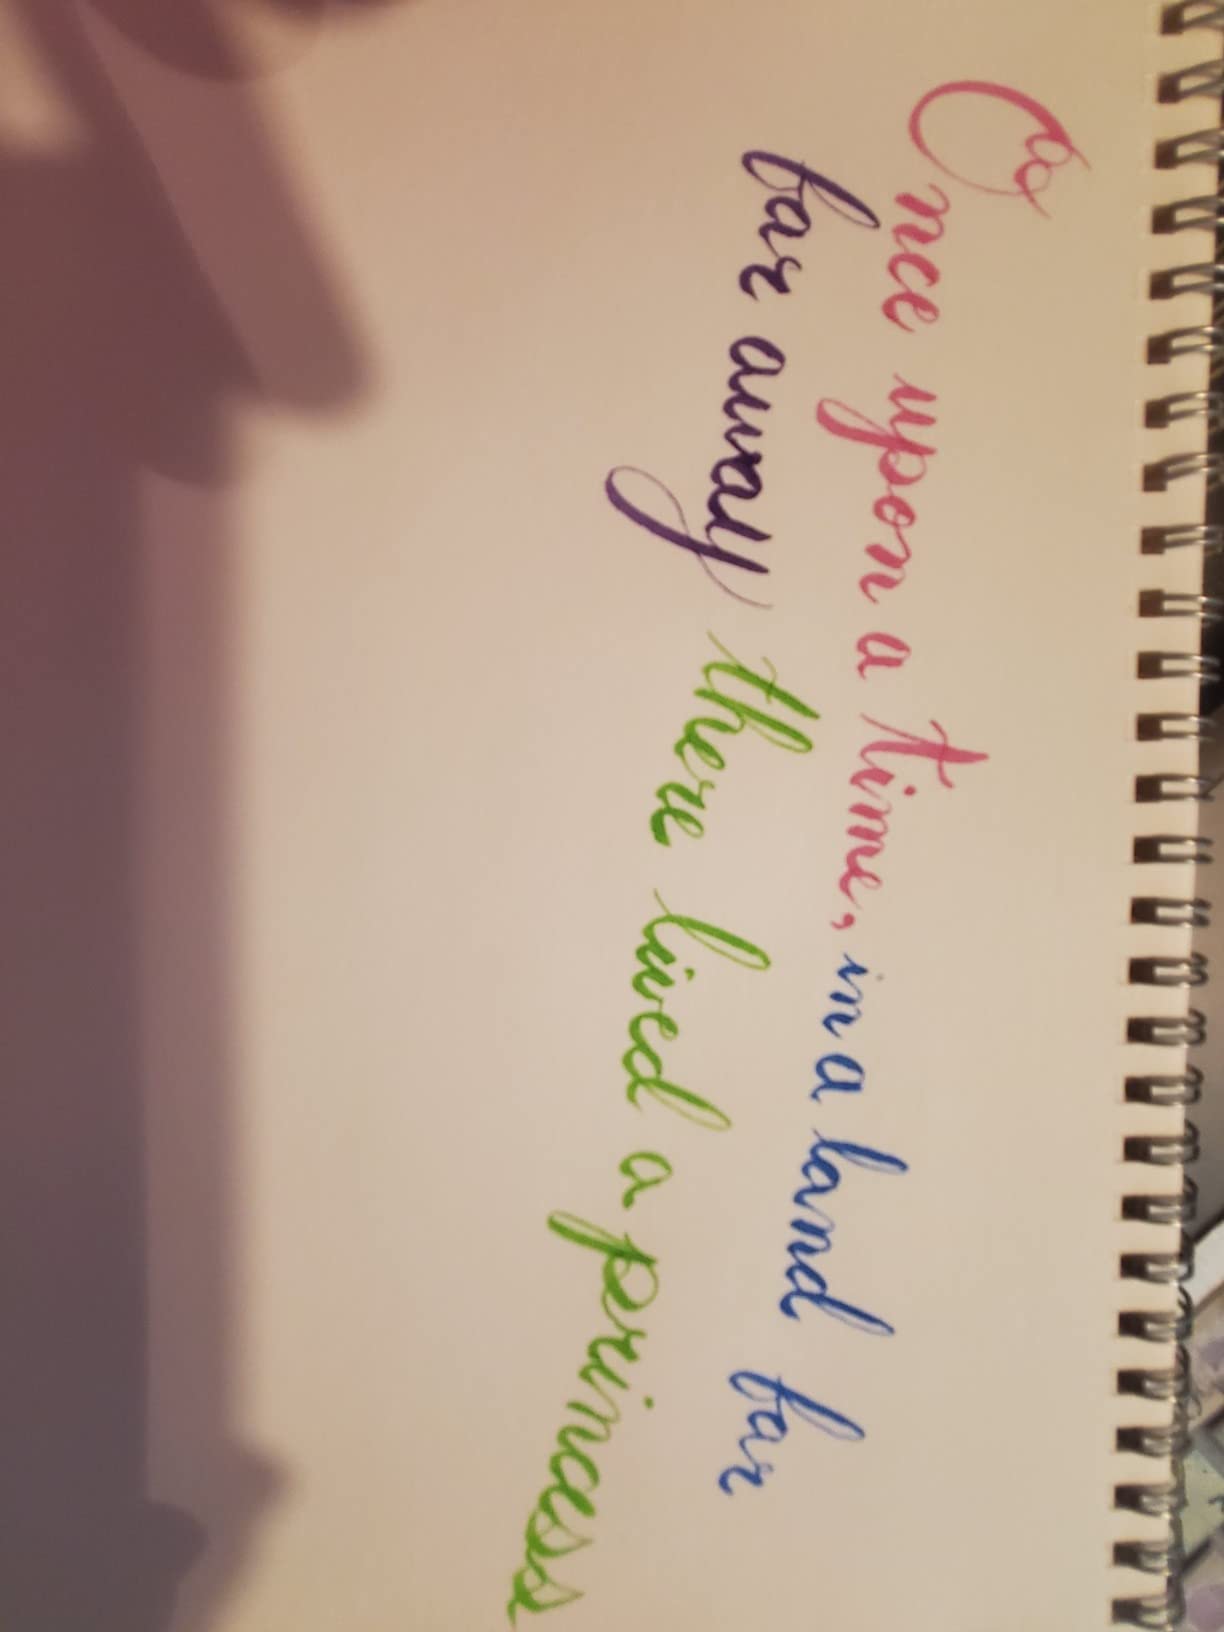 Once upon a time, in a land far
far away there lived a princess